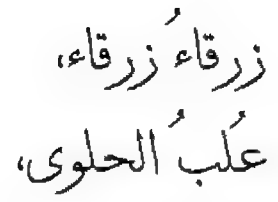 زرقاءُ زرقاء،
عُلبُ الحلوى،